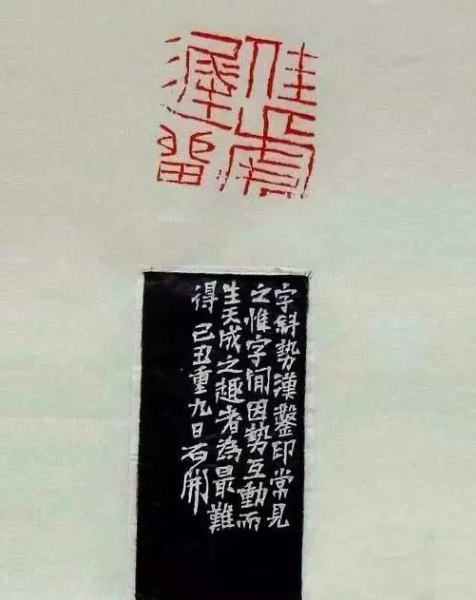 佳處
遲留
字斜勢漢鑿印常見
之惟字間因勢互動而
生天成之趣者為最難
得 己丑重九日石開